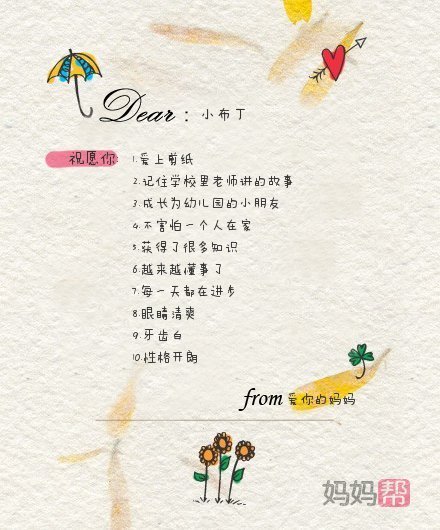 Dear：小布丁
祝愿你:
1.爱上剪纸
2.记住学校里老师讲的故事
3.成长为幼儿园的小朋友
4.不害怕一个人在家
5.获得了很多知识
6.越来越懂事了
7.每一天都在进步
8.眼睛清爽
9.牙齿白
10.性格开朗
from 爱你的妈妈
妈妈帮